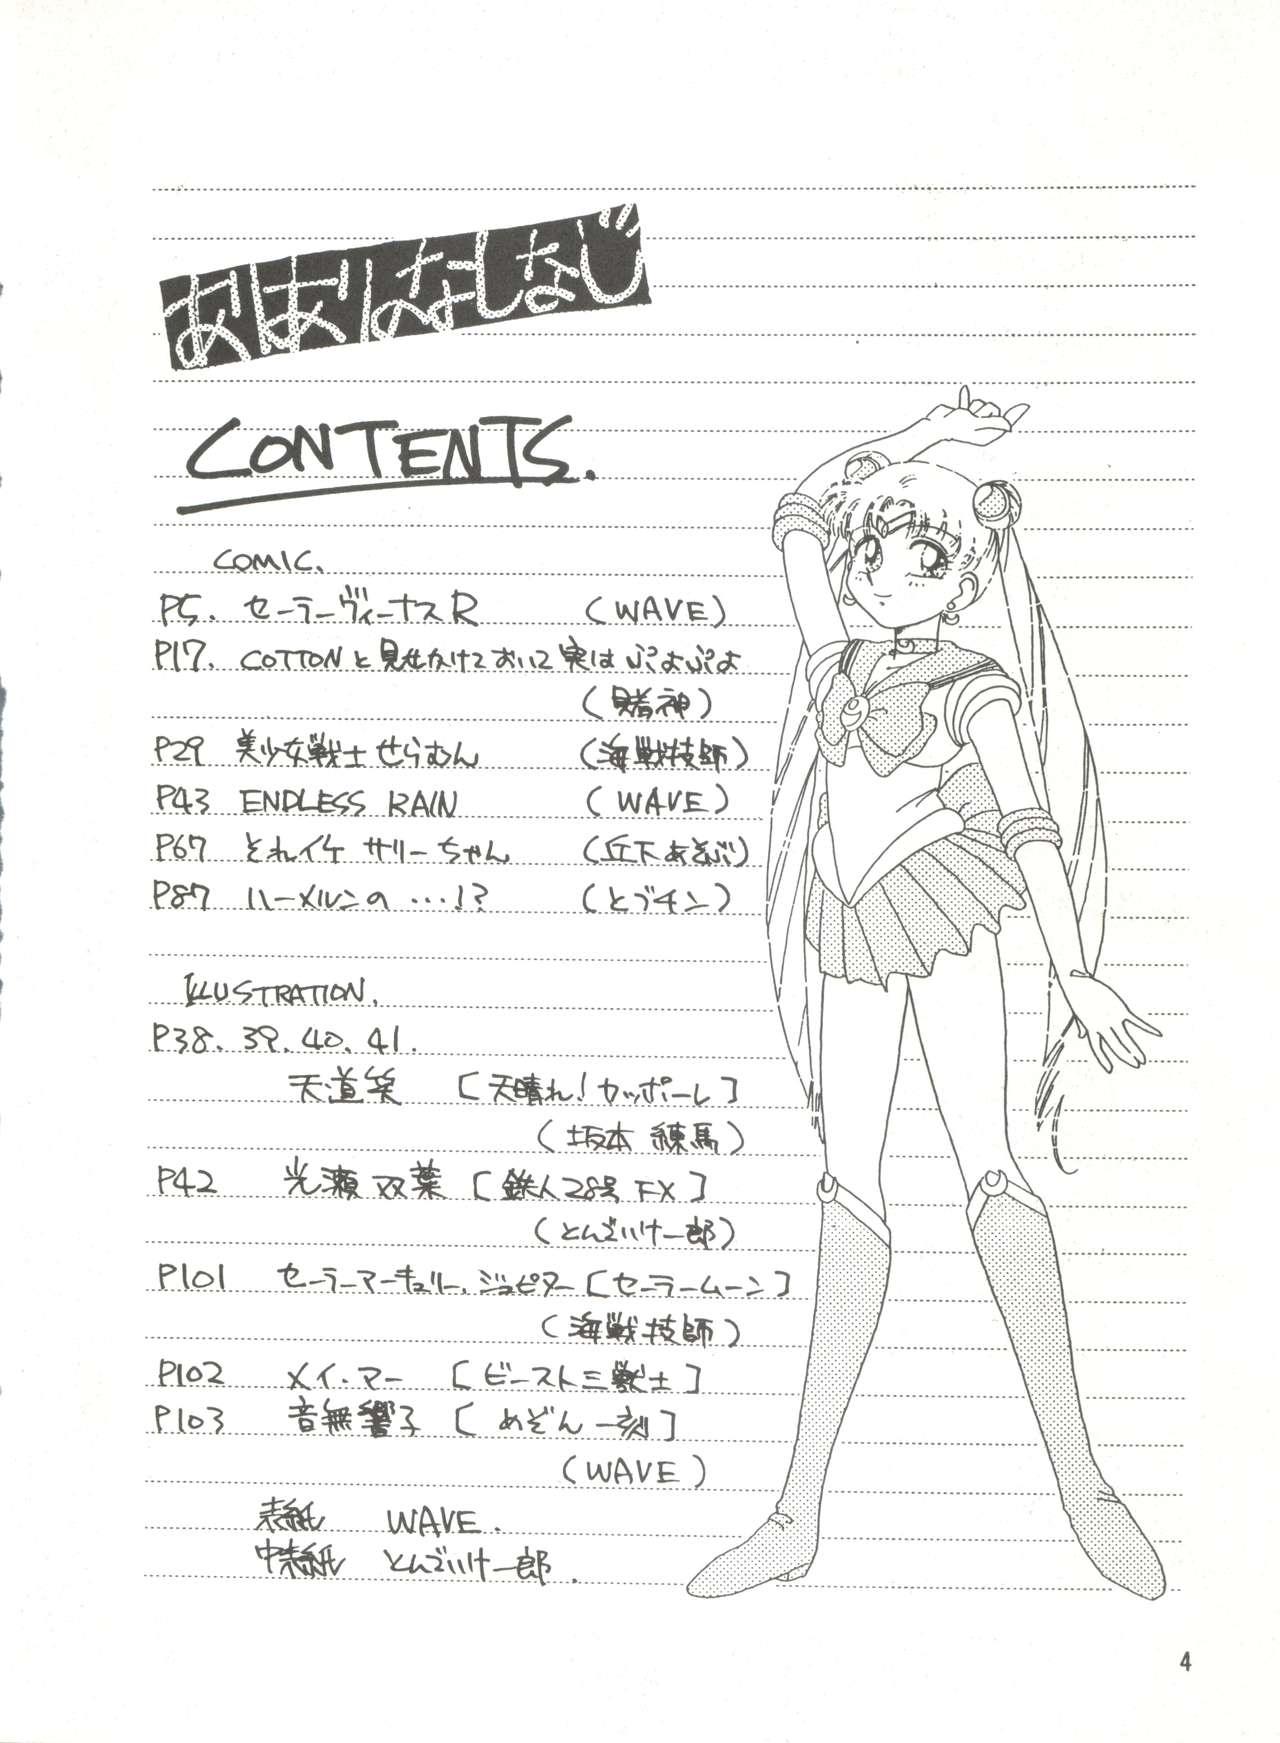 CONTENTS.
COMIC.
P5. セーラーヴィーナスR (WAVE)
P17. COTTONと見せかけておいて実はぷよぷよ
(賭神)
P29 美少女戦士せらむん (海戦技師)
P43 ENDLESS RAIN (WAVE)
P67 それイケ サリーちゃん (丘下あそぶ)
P87 ハーメルンの…!? (とブチン)
ILLUSTRATION.
P38.39.40.41.
天道笑 [天晴れ!カッポーレ]
(坂本 練馬)
P42 光瀬双葉 [鉄人28号FX]
(とんでいけ一郎)
P101 セーラーマーキュリー.ジュピター[セーラームーン]
(海戦技師)
P102 メイ・マー [ビースト三獣士]
P103 音無響子 [めぞん一刻]
(WAVE)
表紙 WAVE.
中表紙 とんでいけ一郎.
4